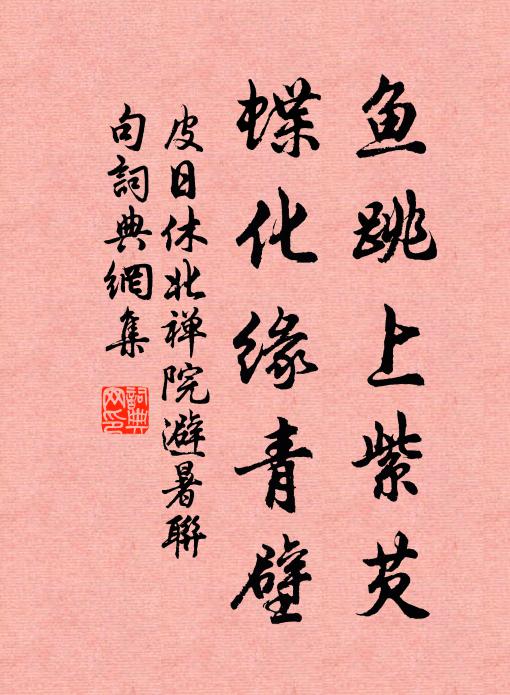 鱼跳上紫芡
蝶化缘青壁
皮日休北禅院避暑联
句詞典網集
詞典
网印